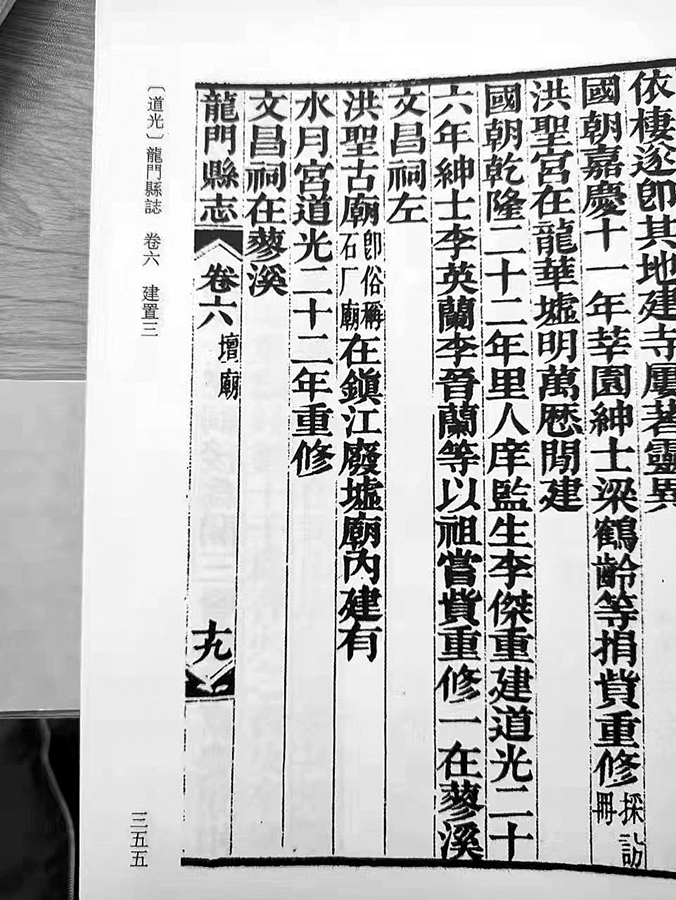 依棲遂卽其地建寺屢著靈異
國朝嘉慶十一年莘園紳士梁鶴齡等捐貲重修採訪冊
洪聖宮在龍華墟明萬厯間建
國朝乾隆二十二年里人庠監生李傑重建道光二十
六年紳士李英蘭李晉蘭等以祖嘗貲重修一在蓼溪
文昌祠左
洪聖古廟卽俗稱石厂廟在鎭江廢墟廟內建有
水月宮道光二十二年重修
文昌祠在蓼溪
龍門縣志 卷六 壇廟 十九
〔道光〕龍門縣誌 卷六 建置三
三五五